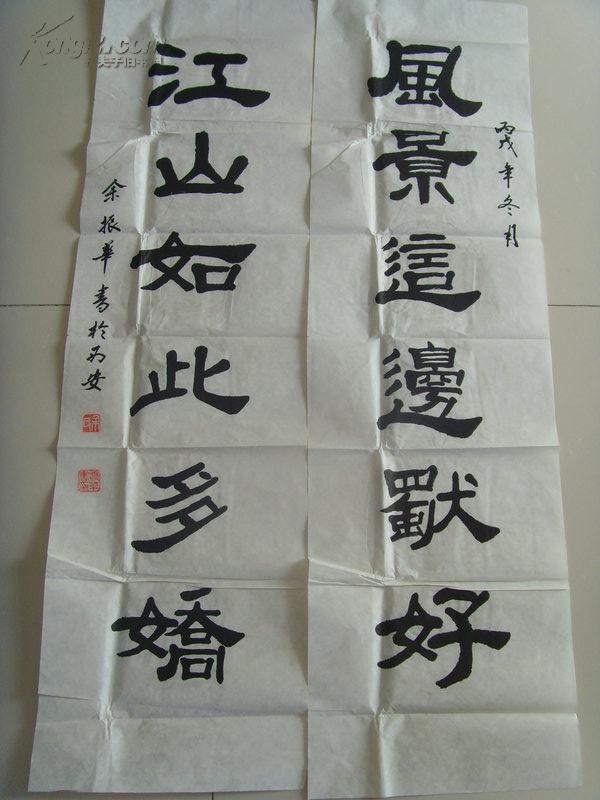 風景這邊獨好
丙戌年冬月
江山如此多嬌
余振華書於西安
Kongfz.com
孔夫子旧书网